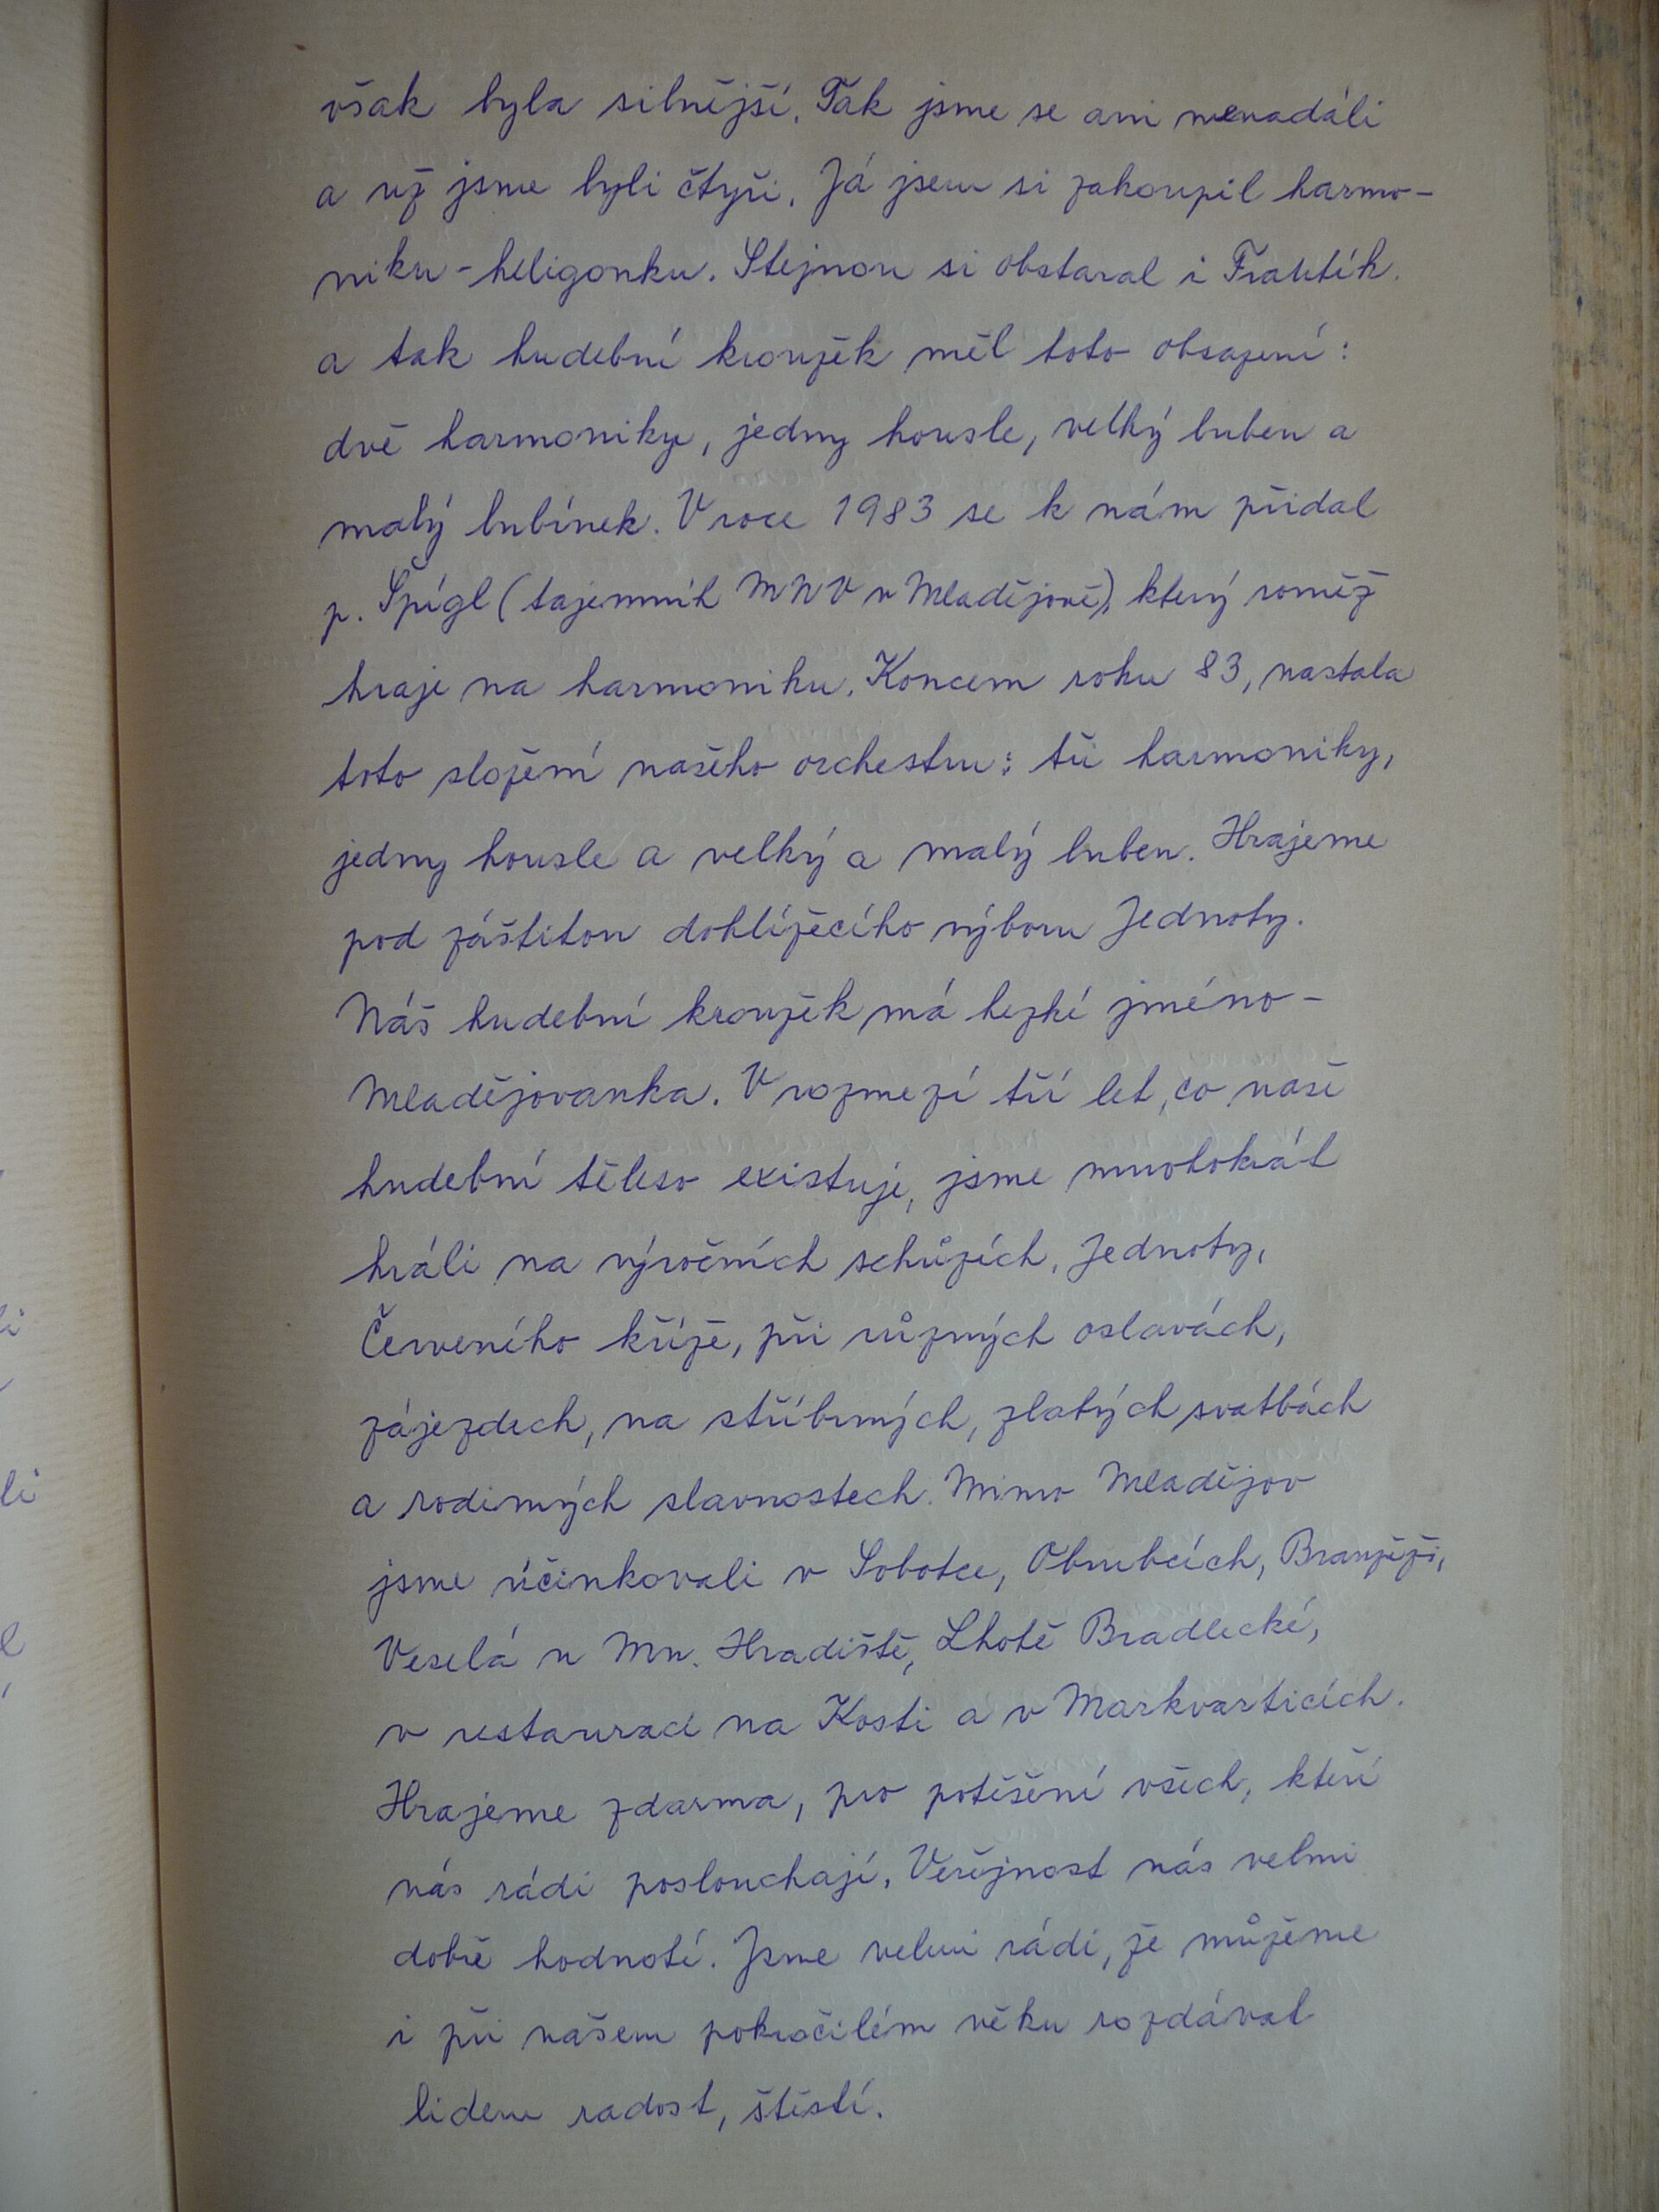 však byla silnější. Tak jsme se ani nenadáli
a už jsme byli čtyři. Já jsem si zakoupil harmo-
niku - heligonku. Stejnou si obstaral i Frantík.
a tak hudební kroužek měl toto obsazení:
dvě harmoniky, jedny housle, velký buben a
malý bubínek. V roce 1983 se k nám přidal
p. Špígl (tajemník MNV v Mladějově), který rovněž
hraje na harmoniku. Koncem roku 83, nastala
toto složení našeho orchestru: tři harmoniky,
jedny housle a velký a malý buben. Hrajeme
pod záštitou dohlížecího výboru Jednoty.
Náš hudební kroužek má hezké jméno -
Mladějovanka. V rozmezí tří let, co naše
hudební těleso existuje, jsme mnohokrát
hráli na výročních schůzích, Jednoty,
Červeného kříže, při různých oslavách,
zájezdech, na stříbrných, zlatých svatbách
a rodinných slavnostech. Mimo Mladějov
jsme účinkovali v Sobotce, Obrubcích, Branžeži,
Veselá u Mn. Hradiště, Lhotě Bradlecké,
v restauraci na Kosti a v Markvarticích.
Hrajeme zdarma, pro potěšení všech, kteří
nás rádi poslouchají. Veřejnost nás velmi
dobře hodnotí. Jsme velmi rádi, že můžeme
i při našem pokročilém věku rozdávat
lidem radost, štěstí.